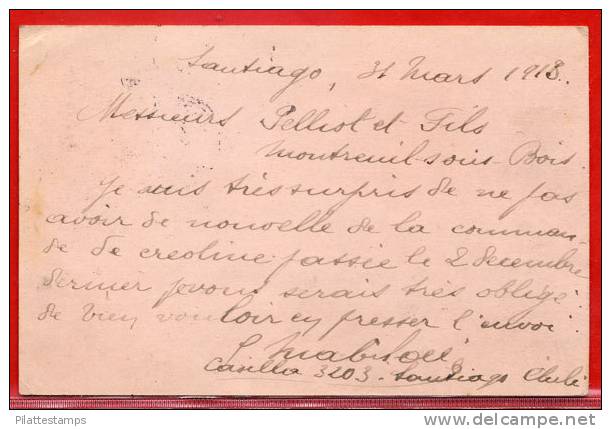 Santiago, 31 Mars 1913.
Messieurs Pelliot et Fils
Montreuil-sous-Bois.
Je suis très surpris de ne pas
avoir de nouvelle de la comman-
de de creoline passée le 2 decembre
dernier je vous serais très obligé
de bien vouloir en presser l'envoi.
Casilla 3203. Santiago Chili
Plattestamps
www.delcampe.net